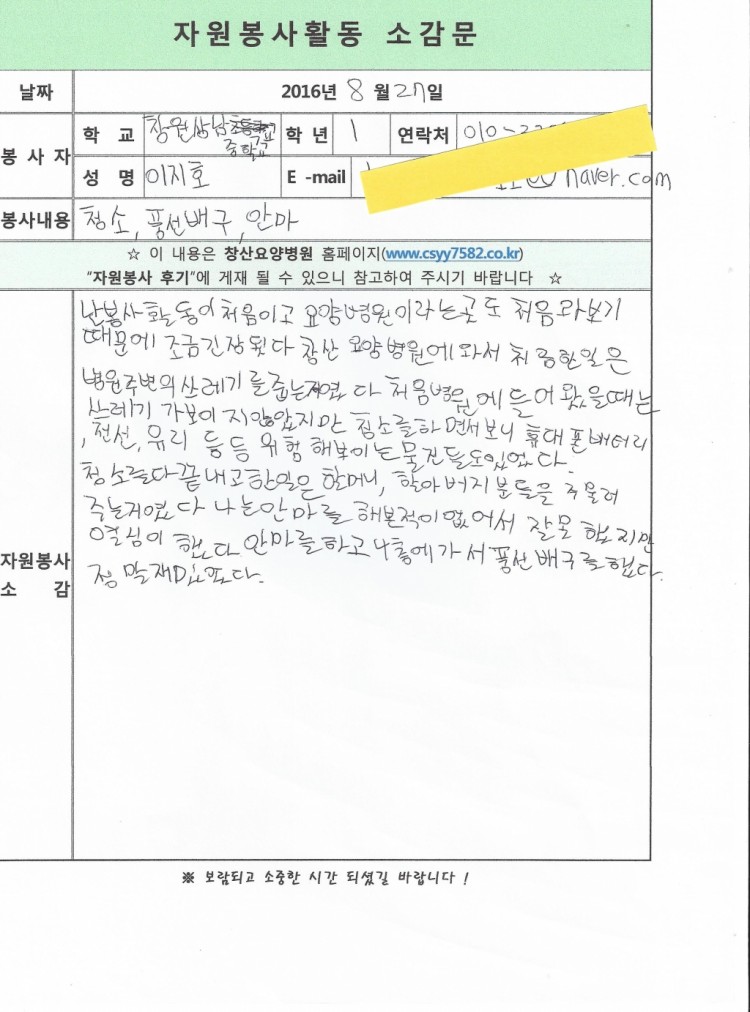 자원봉사활동 소감문
날짜 2016년 8 월 27일
봉사자 학 교 창원상남 중학교 학 년 1 연락처 010-
성 명 이지호 E -mail naver.com
봉사내용 청소, 풍선배구, 안마
☆ 이 내용은 창산요양병원 홈페이지(www.csyy7582.co.kr)
"자원봉사 후기"에 게재 될 수 있으니 참고하여 주시기 바랍니다 ☆
자원봉사 소 감
난봉사활동이 처음이고 요양병원이라는곳도 처음와보기
때문에 조금긴장됬다 창산 요양병원에와서 처음한일은
병원주변의쓰레기를줍는거였다 처음병원에들어왔을때는
쓰레기가보이지않았지만 청소를하면서보니 휴대폰배터리
, 전선, 유리 등등 위험해보이는물건들도있었다.
청소를다끝내고한일은 할머니, 할아버지분들을 주물러
주는거였다 나는안마를 해본적이없어서 잘못 했지만
열심이 했다 안마를하고 4층에가서풍선배구를했다.
정말재미있었다.
※ 보람되고 소중한 시간 되셨길 바랍니다 !